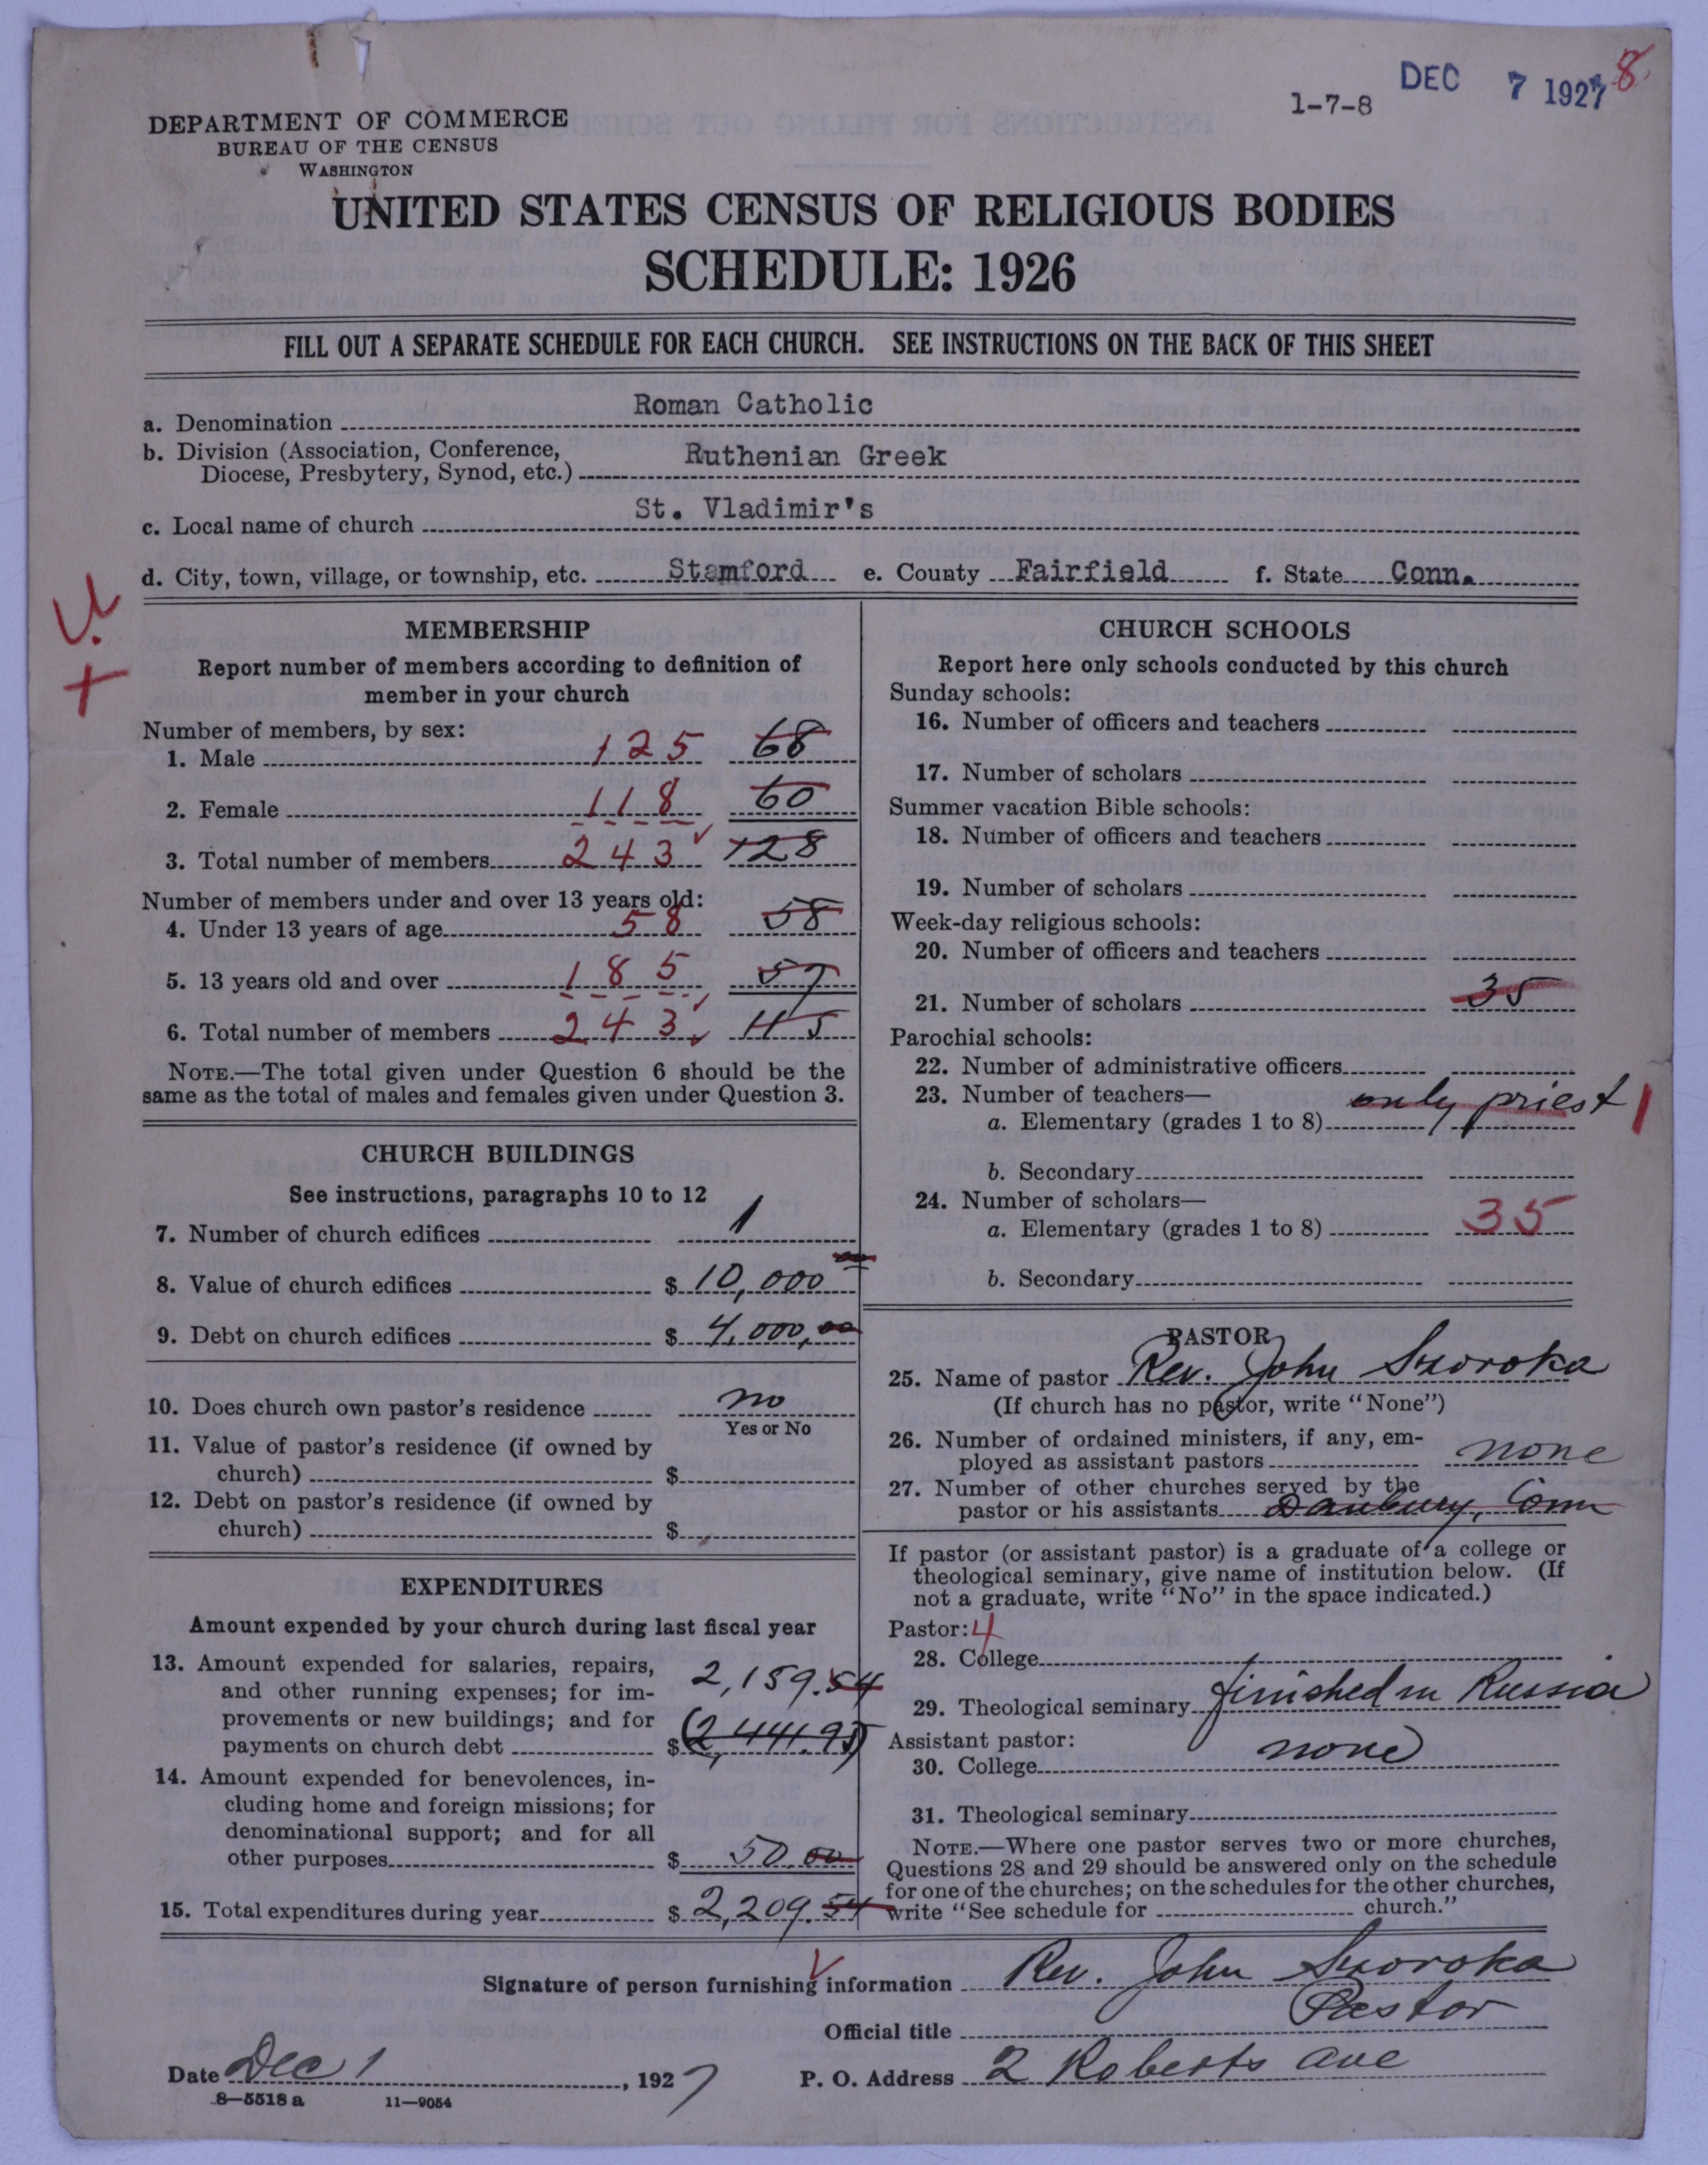 DEC 7 1927 8
1-7-8
DEPARTMENT OF COMMERCE
BUREAU OF THE CENSUS
WASHINGTON
UNITED STATES CENSUS OF RELIGIOUS BODIES
SCHEDULE: 1926
FILL OUT A SEPARATE SCHEDULE FOR EACH CHURCH. SEE INSTRUCTIONS ON THE BACK OF THIS SHEET
a. Denomination Roman Catholic
b. Division (Association, Conference,
Diocese, Presbytery, Synod, etc.) Ruthenian Greek
c. Local name of church St. Vladimir's
d. City, town, village, or township, etc. Stamford e. County Fairfield f. State Conn.
MEMBERSHIP
Report number of members according to definition of
member in your church
Number of members, by sex:
1. Male 125 68
2. Female 118 60
3. Total number of members 243 128
Number of members under and over 13 years old:
4. Under 13 years of age 58 58
5. 13 years old and over 185 57
6. Total number of members 243 115
NOTE.—The total given under Question 6 should be the
same as the total of males and females given under Question 3.
CHURCH BUILDINGS
See instructions, paragraphs 10 to 12
7. Number of church edifices 1
8. Value of church edifices $ 10,000
9. Debt on church edifices $ 4,000,00
10. Does church own pastor's residence no
Yes or No
11. Value of pastor's residence (if owned by
church) $
12. Debt on pastor's residence (if owned by
church) $
EXPENDITURES
Amount expended by your church during last fiscal year
13. Amount expended for salaries, repairs,
and other running expenses; for im- 2,159.54
provements or new buildings; and for
payments on church debt $ (2,441.95)
14. Amount expended for benevolences, in-
cluding home and foreign missions; for
denominational support; and for all
other purposes $ 50.00
15. Total expenditures during year $ 2,209.54
CHURCH SCHOOLS
Report here only schools conducted by this church
Sunday schools:
16. Number of officers and teachers
17. Number of scholars
Summer vacation Bible schools:
18. Number of officers and teachers
19. Number of scholars
Week-day religious schools:
20. Number of officers and teachers
21. Number of scholars 35
Parochial schools:
22. Number of administrative officers
23. Number of teachers—
a. Elementary (grades 1 to 8) only priest 1
b. Secondary
24. Number of scholars—
a. Elementary (grades 1 to 8) 35
b. Secondary
PASTOR
25. Name of pastor Rev. John
(If church has no pastor, write "None")
26. Number of ordained ministers, if any, em-
ployed as assistant pastors none
27. Number of other churches served by the
pastor or his assistants Danbury, Conn
If pastor (or assistant pastor) is a graduate of a college or
theological seminary, give name of institution below. (If
not a graduate, write "No" in the space indicated.)
Pastor: 4
28. College
29. Theological seminary finished in Russia
Assistant pastor:
30. College none
31. Theological seminary
NOTE.—Where one pastor serves two or more churches,
Questions 28 and 29 should be answered only on the schedule
for one of the churches; on the schedules for the other churches,
write "See schedule for church."
Signature of person furnishing information Rev. John
Official title Pastor
Date Dec 1, 1927 P. O. Address 2 Roberts ave
8—5518 a 11—9054